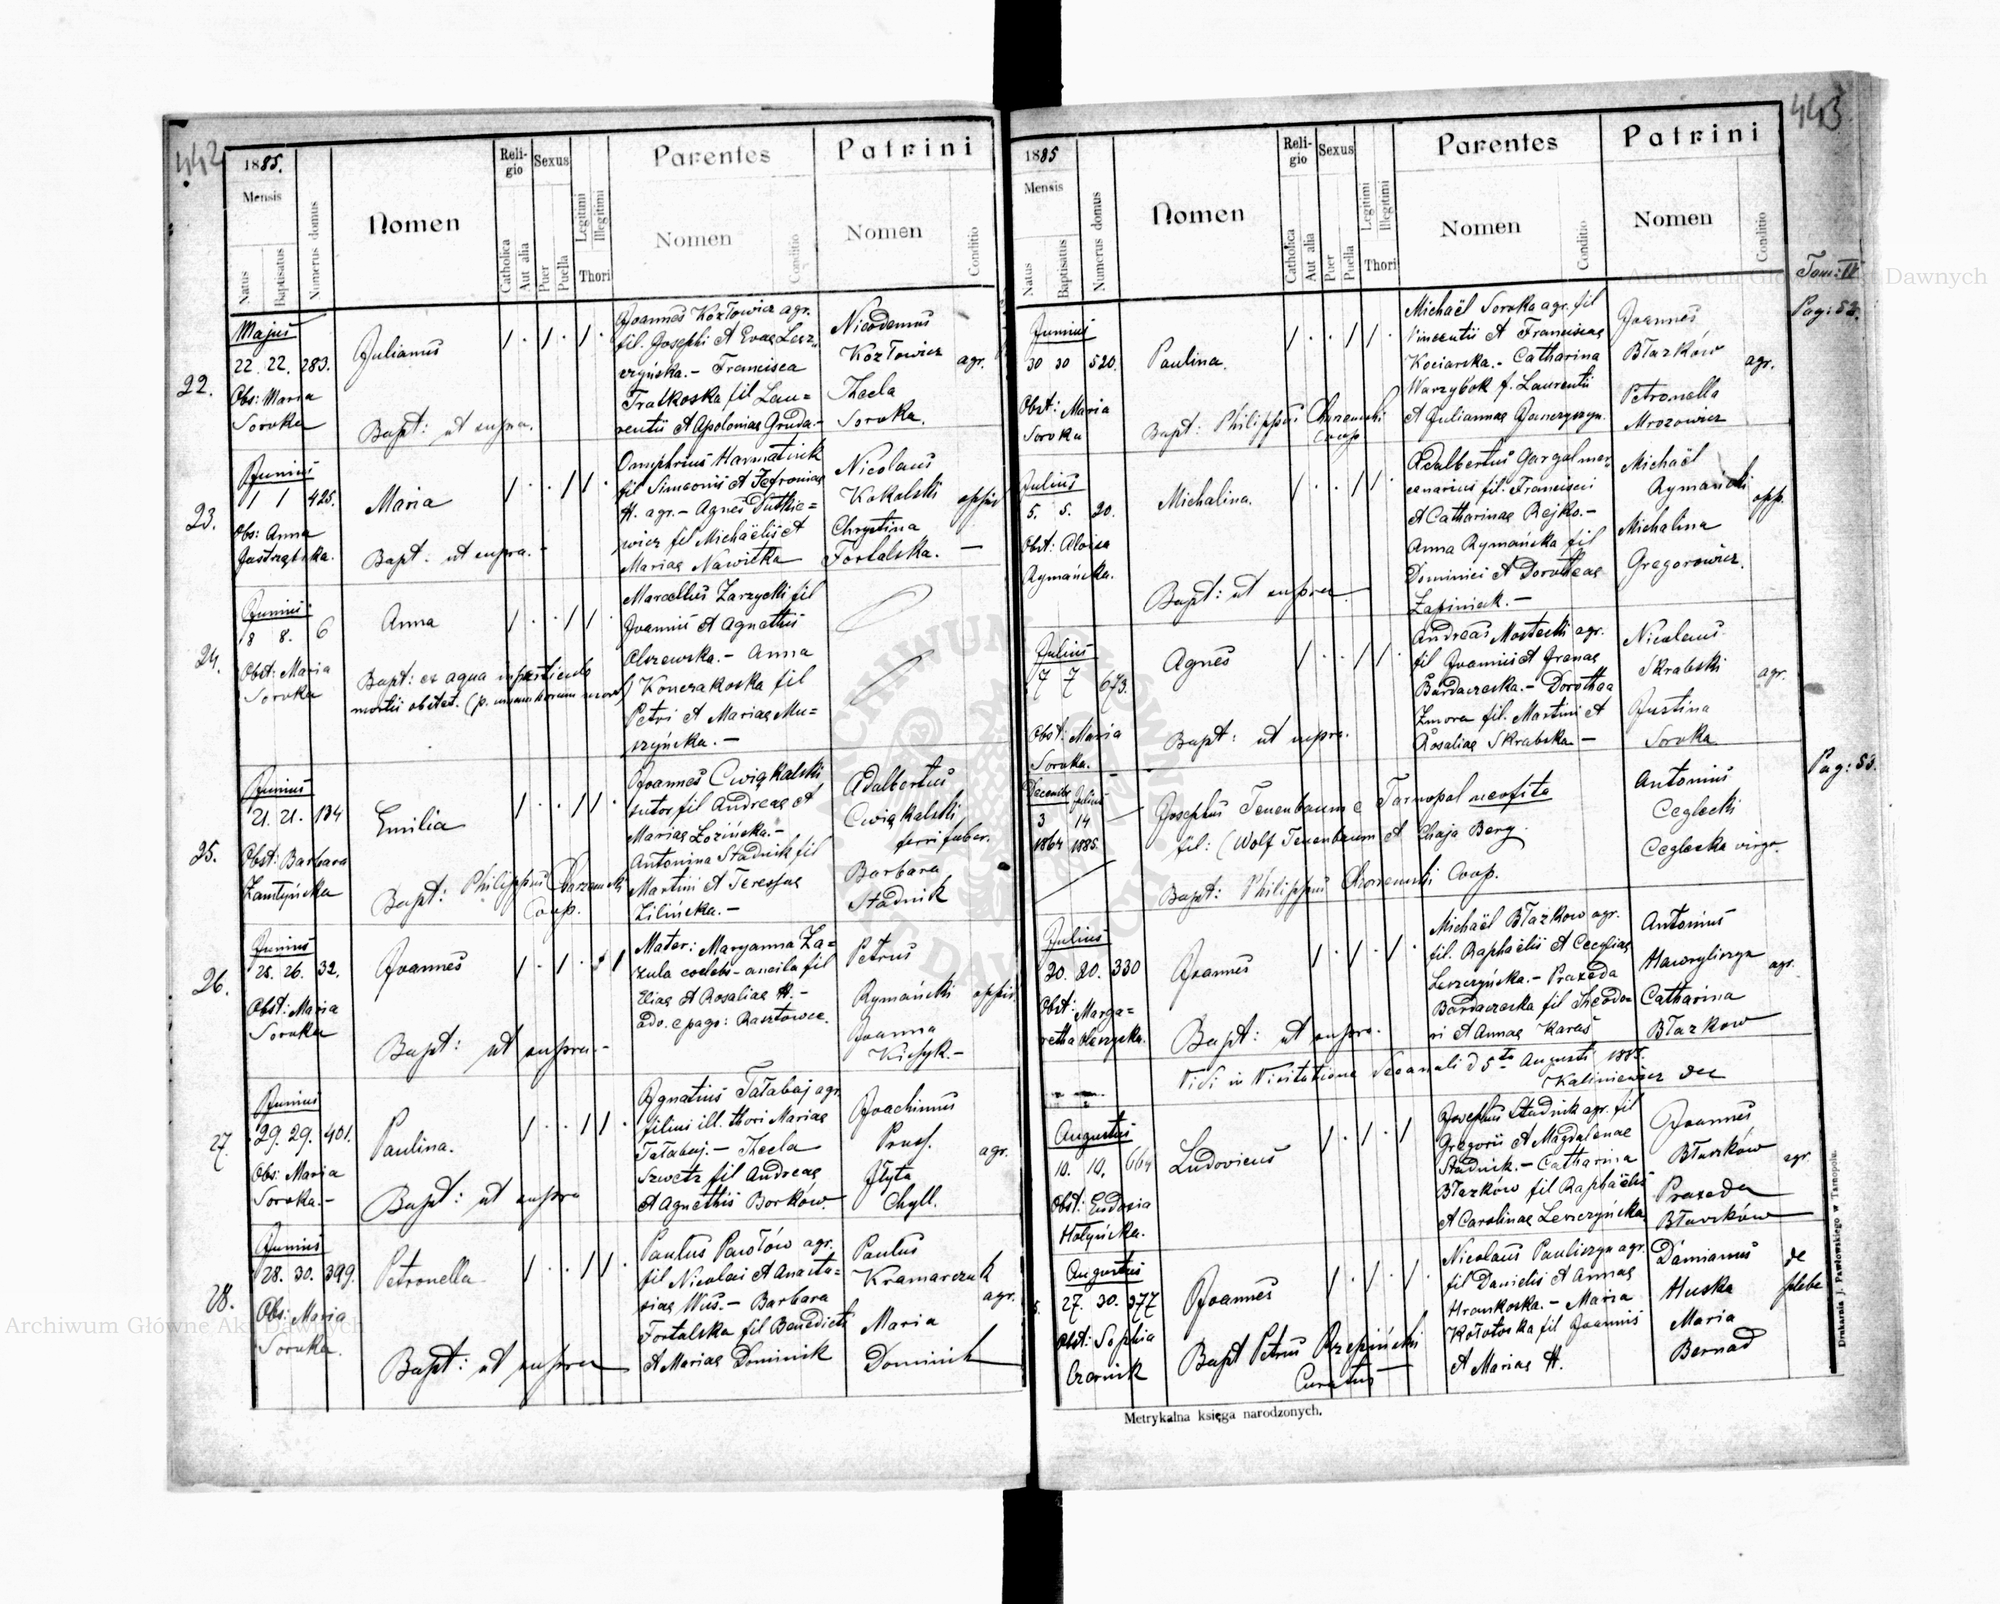 442
1885.
Mensis
Natus
Baptisatus
Numerus domus
Nomen
Religio
Catholica
Aut alia
Sexus
Puer
Puella
Legitimi
Illegitimi
Thori
Parentes
Nomen
Conditio
Patrini
Nomen
Conditio
22.
Majus
22. 22. 283.
Obs: Maria
Soroka
Julianus
Bapt: ut supra.
Joannes Kozłowicz agr.
fil. Josephi et Evae Lesz-
czyńska. - Francisca
Tratkoska fil Lau=
rentii et Apoloniae Gruda. -
Nicodemus
Kozłowicz agr.
Thecla
Soroka.
23.
Junius
1 1 425.
Obs: Anna
Jastrzębska.
Maria
Bapt. ut supra. -
Onuphrius Harmatiuk
fil Simeonis et Jefroniae
H. agr. - Agnes Dutkie=
wicz fil Michaëlis et
Mariae Nawitka
Nicolaus
Kokolski oppid
Chrystina
Fortalska. -
24.
Junius
8 8. 6
Obst: Maria
Soroka
Anna
Bapt: ex aqua in periculo
mortis obstet.
Marcellus Zarzycki fil
Joannis et Agnethis
Olszewska. - Anna
Konczakoska fil
Petri et Mariae Mu=
szyńska. -
25.
Junius
21. 21. 134
Obst: Barbara
Zamłyńska
Emilia
Bapt: Philippus
Coop.
Joannes Cwiękalski
sutor fil Andreae et
Mariae Łozińska. -
Antonina Stadnik fil
Martini et Teressae
Zilińska. -
Adalbertus
Cwiękalski
ferri faber.
Barbara
Stadnik
26.
Junius
26. 26. 32.
Obst: Maria
Soroka
Joannes
Bapt: ut supra. -
Mater: Maryanna Za=
zula coelebs - ancila fil
Eliae et Rosaliae H. -
adv. e pago: Rasztowce.
Petrus
Rymański oppid.
Joanna
Kichyk. -
27.
Junius
29. 29. 401.
Obs: Maria
Soroka. -
Paulina.
Bapt: ut supra
Ignatius Tatabaj agr
filius ill. thori Mariae
Tatabaj. - Thecla
Szwetz fil Andreae
et Agnethis Borków.
Joachimus
Prus. agr.
Jłyta
Chyll.
28.
Junius
28. 30. 399.
Obs: Maria
Soroka.
Petronella
Bapt: ut supra
Paulus Pawłów agr.
fil Nicolai et Anasta=
siae Wus. - Barbara
Fortalska fil Benedicti
et Mariae Dominik
Paulus
Kramarczuk
agr.
Maria
Dominik
443
1885
Mensis
Natus
Baptisatus
Numerus domus
Nomen
Religio
Catholica
Aut alia
Sexus
Puer
Puella
Legitimi
Illegitimi
Thori
Parentes
Nomen
Conditio
Patrini
Nomen
Conditio
Tom: II
Pag: 52.
Junius
30 30 520.
Obst: Maria
Soroka
Paulina.
Bapt: Philippus
Coop
Michaël Soroka agr. fil
Vincentii et Franciscae
Kociarska. - Catharina
Warzybok f. Laurentii
et Juliannae Janczyszyn.
Joannes
Błazków agr.
Petronella
Mrozowicz
Julius
5. 5. 20.
Obst: Aloisa
Rymańska.
Michalina.
Bapt: ut supra.
Adalbertus Gargol mer=
cenarius fil. Francisci
et Catharinae Rejko. -
Anna Rymańska fil
Dominici et Dorotheae
Łapiniak. -
Michaël
Rymański opp.
Michalina
Gregorowicz.
Julius
7 7 673.
Obst: Maria
Soroka.
Agnes
Bapt: ut supra.
Andreas Mostecki agr.
fil Joannis et Iranae
Bardaczeska. - Dorothea
Zmora fil. Martini et
Rosaliae Skrabska -
Nicolaus
Skrabski agr.
Justina
Soroka
Pag: 53.
December Julius
3 14
1864 1885.
Josephus Tenenbaum e Tarnopol neofita
fil: (Wolf Tenenbaum et Chaja Berg
Bapt: Philippus Coop.
Antonius
Ceglecki
Cegleska virgo.
Julius
20. 20. 330
Obst: Marga=
retha Leszczyska.
Joannes
Bapt: ut supra.
Michaël Błazkow agr.
fil. Raphaëlis et Ceceliae
Leszczyńska. - Praxeda
Bardaczeska fil Theodo=
ri et Annae Karaś
Antonius
Hawryliszyn agr.
Catharina
Błazkow
Vidi in Visitatione decanali d 5ta Augusti 1885.
Kaliniewicz dec
Augustus
10. 10. 664
Obst: Eudoxia
Hołyńska.
Ludovicus
Josephus Stadnik agr. fil
Gregorii et Magdalenae
Stadnik. - Catharina
Błazków fil Raphaëlis
et Carolinae Leszczyńska
Joannes
Błazków agr.
Praxeda
Błazków
Augustus
27. 30. 377
Obst: Sophia
Czornik
Joannes
Bapt Petrus Rzepiński
Curatus
Nicolaus Pauliszyn agr.
fil Danielis et Annae
Hrankoska. - Maria
Kołotoska fil Joannis
et Mariae H.
Damianus de
Huska plebe
Maria
Bernad
Metrykalna księga narodzonych.
Drukarnia J. Pawłowskiego w Tarnopolu.
Archiwum Główne Akt Dawnych
Archiwum Główne Akt Dawnych
ARCHIWUM GŁÓWNE AKT DAWNYCH